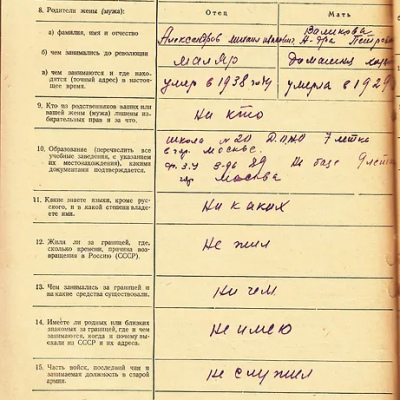 8. Родители жены (мужа):
Отец
Мать
а) фамилия, имя и отчество
Александров
б) чем занимались до революции
маляр
домашняя
в) чем занимаются и где нахо-
дятся (точный адрес) в настоя-
щее время.
умер в 1938 году
умерла в 1929
9. Кто из родственников ваших или
вашей жены (мужа) лишены из-
бирательных прав и за что.
Ни кто
10. Образование (перечислить все
учебные заведения, с указанием
их местонахождения), какими
документами подтверждается.
школа № 20 7 летка
в гор. Москве.
Ф.З.У. з-да 89 На базе
гор Москва
11. Какие знаете языки, кроме рус-
ского, и в какой степени владе-
ете ими.
Ни каких
12. Жили ли за границей, где,
сколько времени, причина воз-
вращения в Россию (СССР).
Не жил
13. Чем занимались за границей и
на какие средства существовали.
ни чем
14. Имеете ли родных или близких
знакомых за границей, где и чем
занимаются, когда и почему вы-
ехали из СССР и их адреса.
не имею
15. Часть войск, последний чин и
занимаемая должность в старой
армии.
не служил